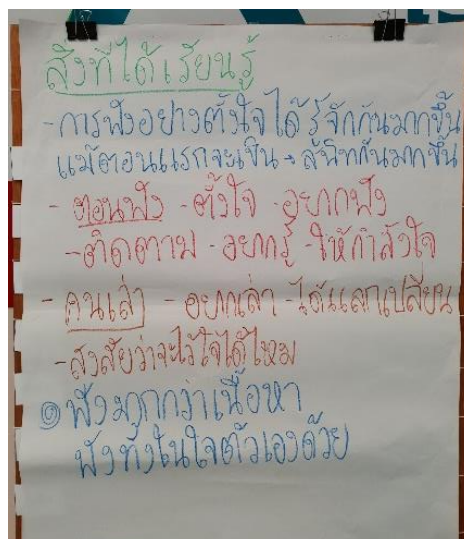 สิ่งที่ได้เรียนรู้
-การฟังอย่างตั้งใจ ได้รู้จักกันมากขึ้น
แม้ตอนแรกจะเขิน → สนิทกันมากขึ้น
- ตอนฟัง -ตั้งใจ -อยากฟัง
-ติดตาม -อยากรู้ -ให้กำลังใจ
- คนเล่า -อยากเล่า -ได้แลกเปลี่ยน
-สงสัยว่าจะไว้ใจได้ไหม
๏ ฟังมากกว่าเนื้อหา
ฟังทั้งในใจตัวเองด้วย